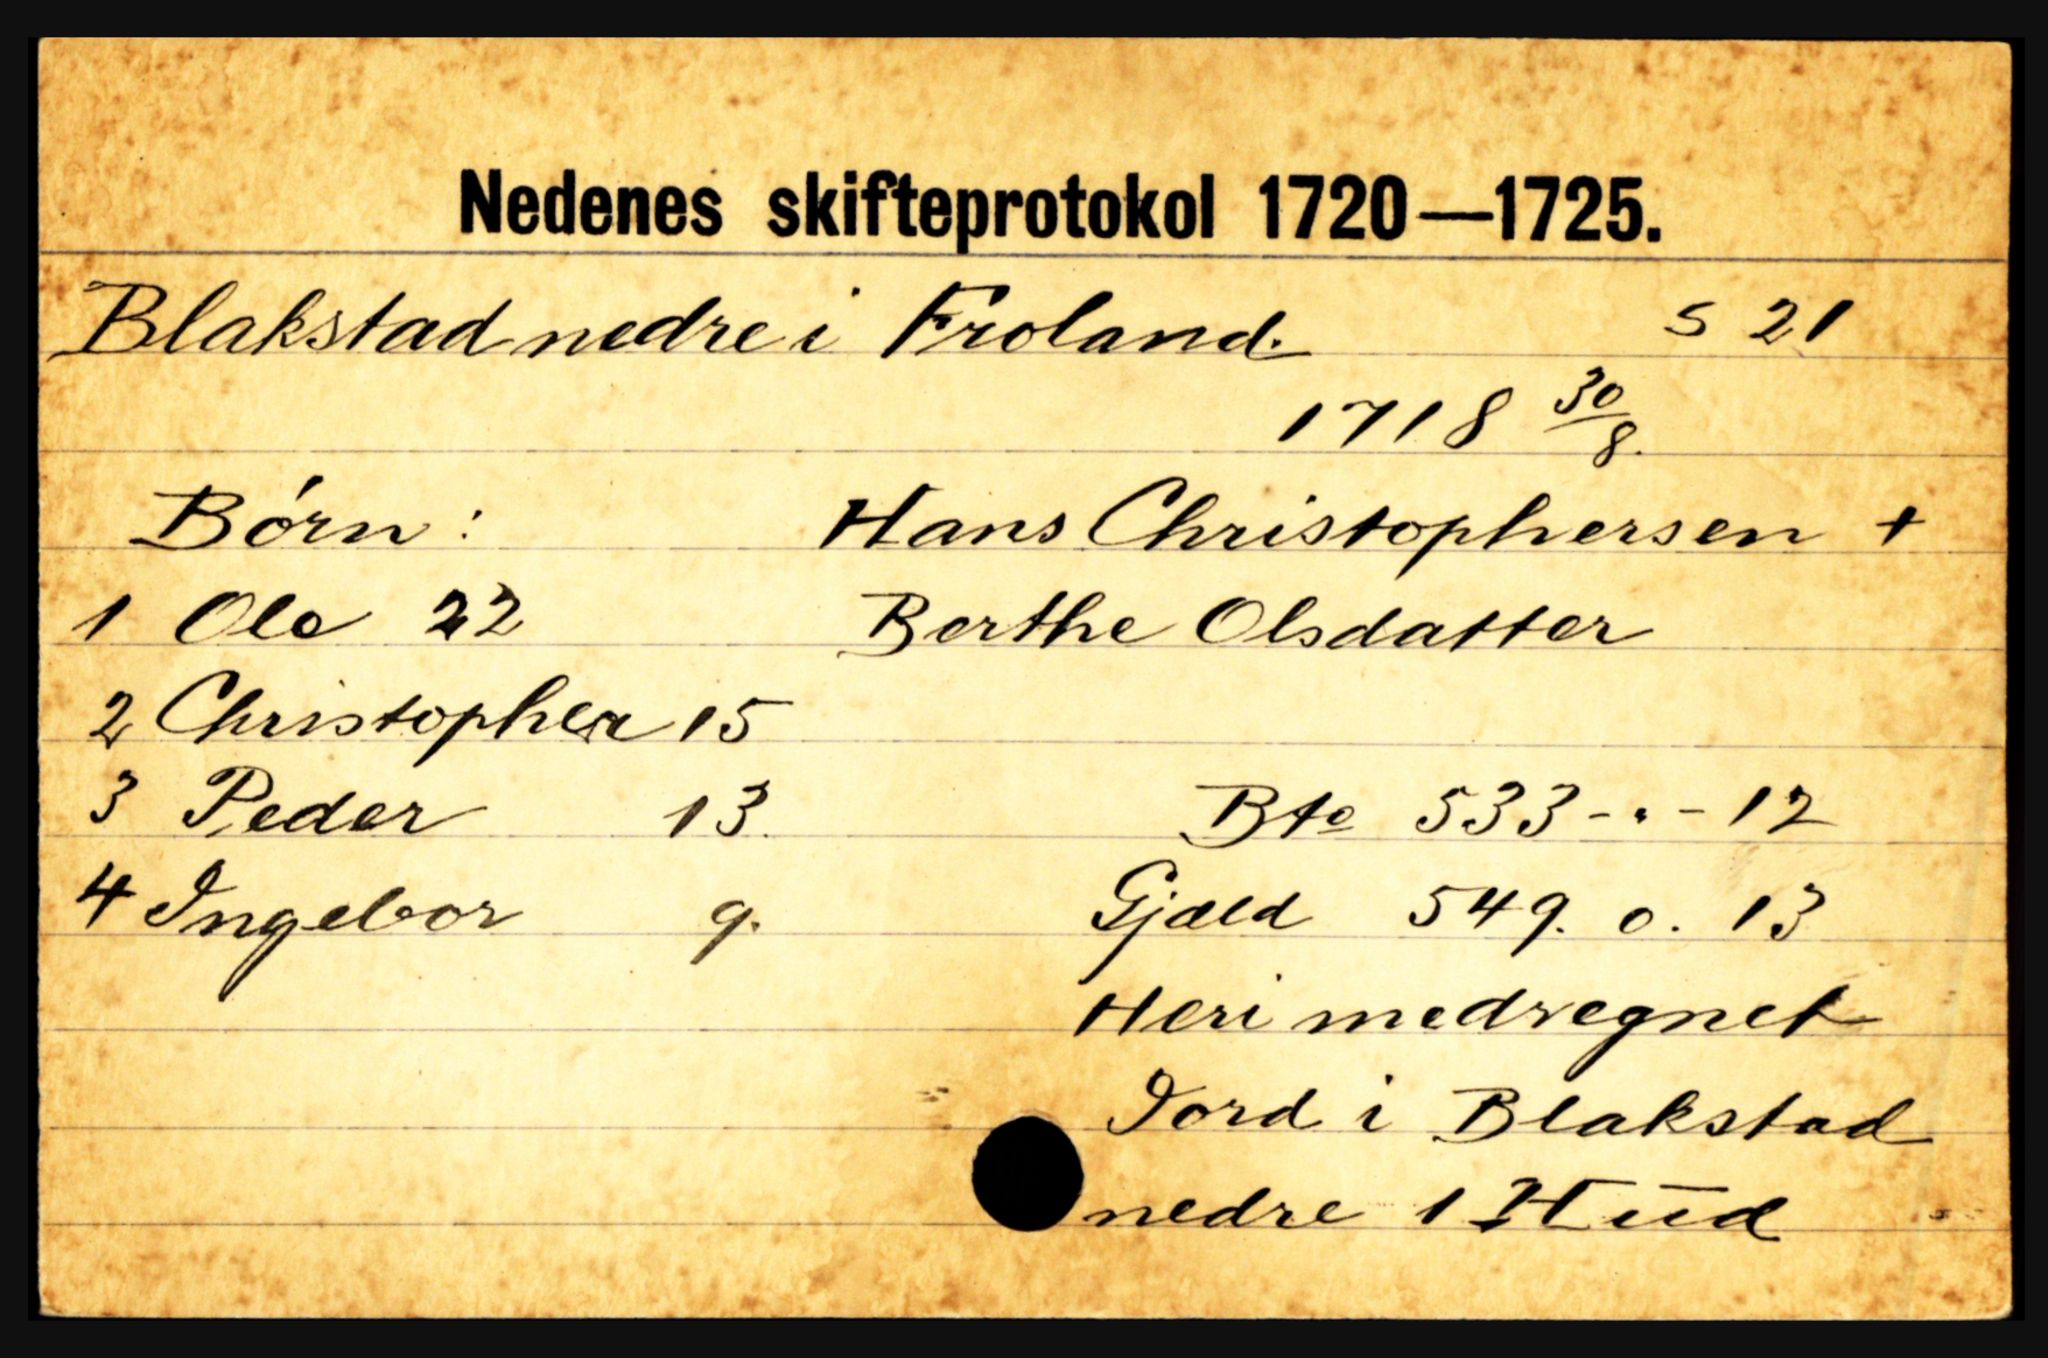 Nedenes skifteprotokol 1720—1725.
Blakstad nedre i Froland. S 21
1718 30/8.
Børn: Hans Christophersen +
1 Ole 22 Berthe Olsdatter
2 Christopher 15
3 Peder 13. Bto 533 - " - 12
4 Ingebor 9. Gjæld 549. 0. 13
Heri medregnet
Jord i Blakstad
nedre 1 Hud